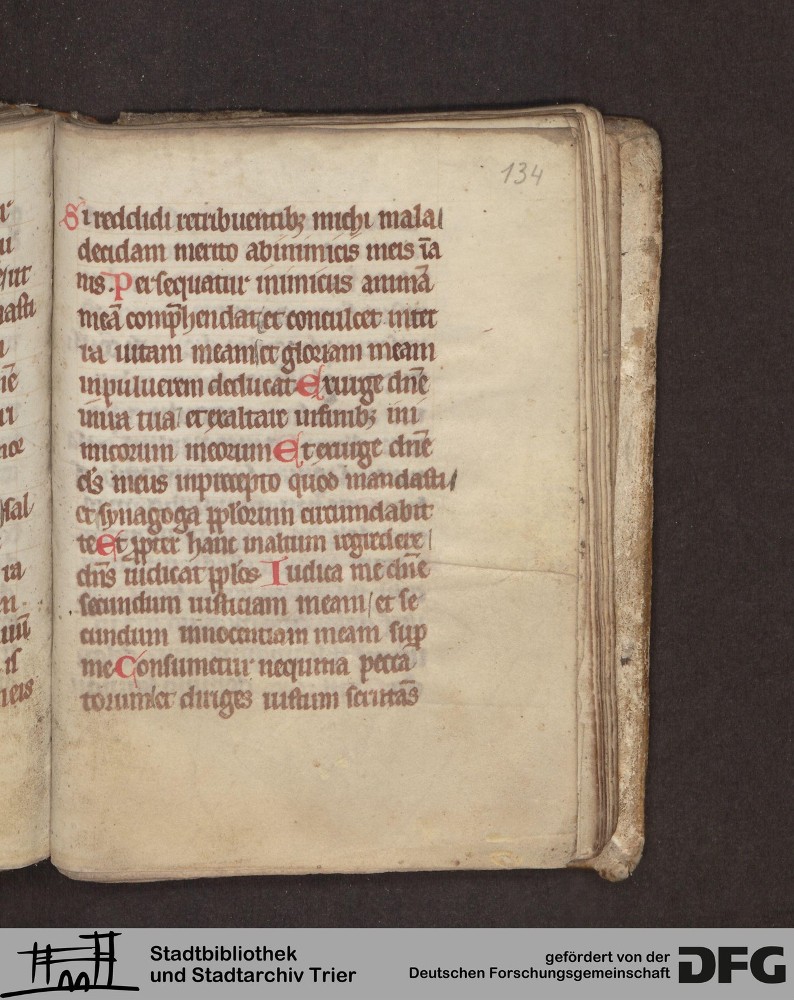 134
Si reddidi retribuentibꝫ michi mala/
decidam merito abinimicis meis īa
nis. Persequatur inimicus animā
meā comp̄hendat/et conculcet in terr
ra uitam meam/et gloriam meam
inpuluerem deducat Exurge dn̄e
inira tua/ et exaltare infinibꝫ ini
micorum meorum Et exurge dn̄e
ds̄ meus inprecepto quod mandasti/
et synagoga pplōrum circumdabit
te Et ꝓpter hanc inaltum regredere/
dn̄s iudicat pplōs Iudica me dn̄e
secundum iusticiam meam/et se
cundum innocentiam meam sup̄
me Consumetur nequitia peccā
torum/et diriges iustum scrutās
Stadtbibliothek
und Stadtarchiv Trier
gefördert von der
Deutschen Forschungsgemeinschaft
DFG